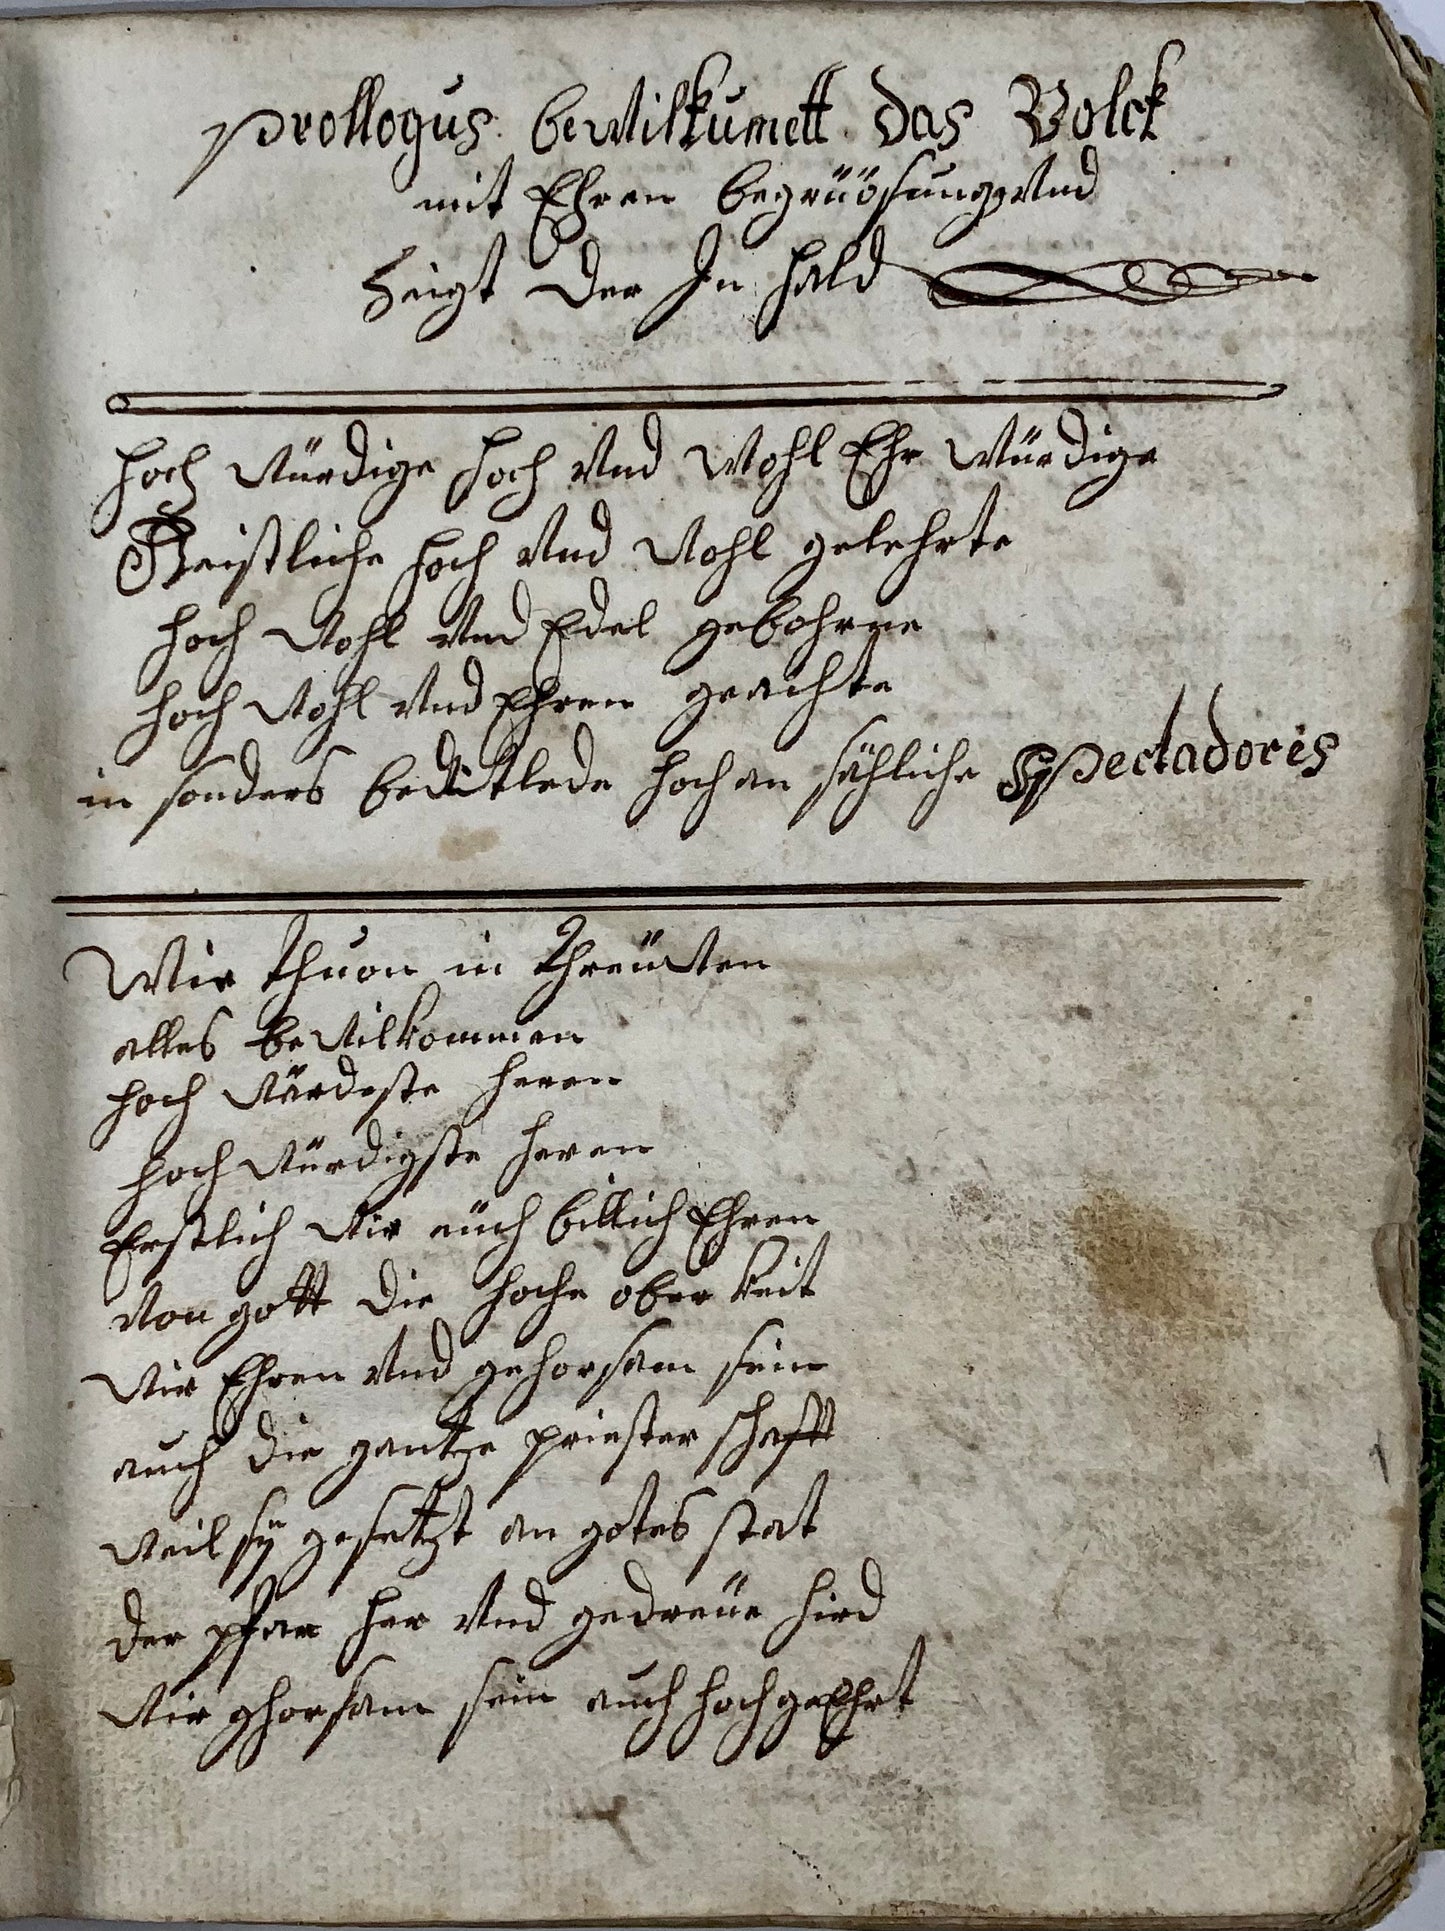 prollogus bewilkumett das Volck
mit Ehren begrüösung Und
Zeigt der In hald
hoch würdige hoch Und Wohl Ehr Würdige
Geistliche hoch Und Wohl gelehrte
hoch Wohl Und Edel gebohrne
hoch Wohl Und Ehren geachte
in sonders bedittlede hoch an sähliche Spectadores
Wir thuon in threüwen
alles bewilkommen
hoch wärdeste heren
hoch würdigste heren
Erstlich wir eüch billich Ehren
Von gott die hoche ober keit
wir Ehren Und gehorsam sein
auch die gantze priester schafft
weil sÿ gesetzt an gotes stat
der pfar her Und gedreüe hird
wir ghorsam sein auch hoch geEhrt